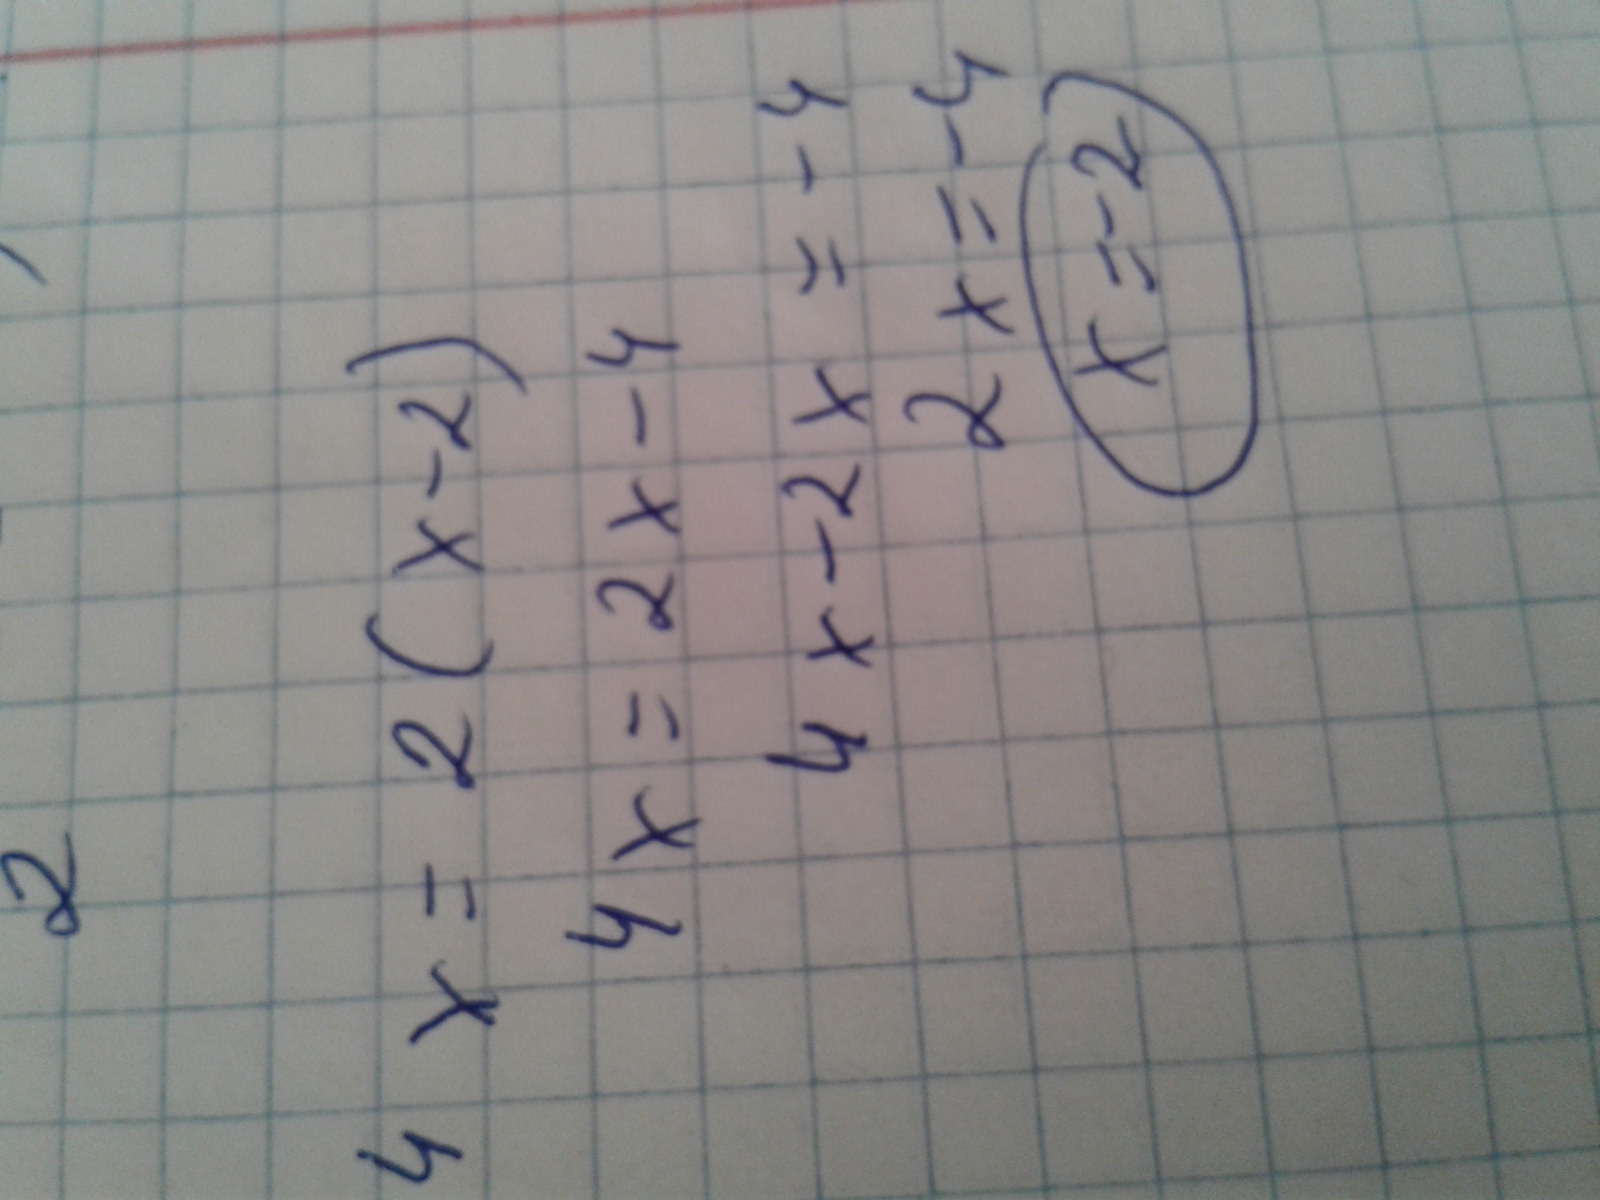 2
4x = 2(x-2)
4x = 2x-4
4x-2x = -4
2x=-4
x=-2